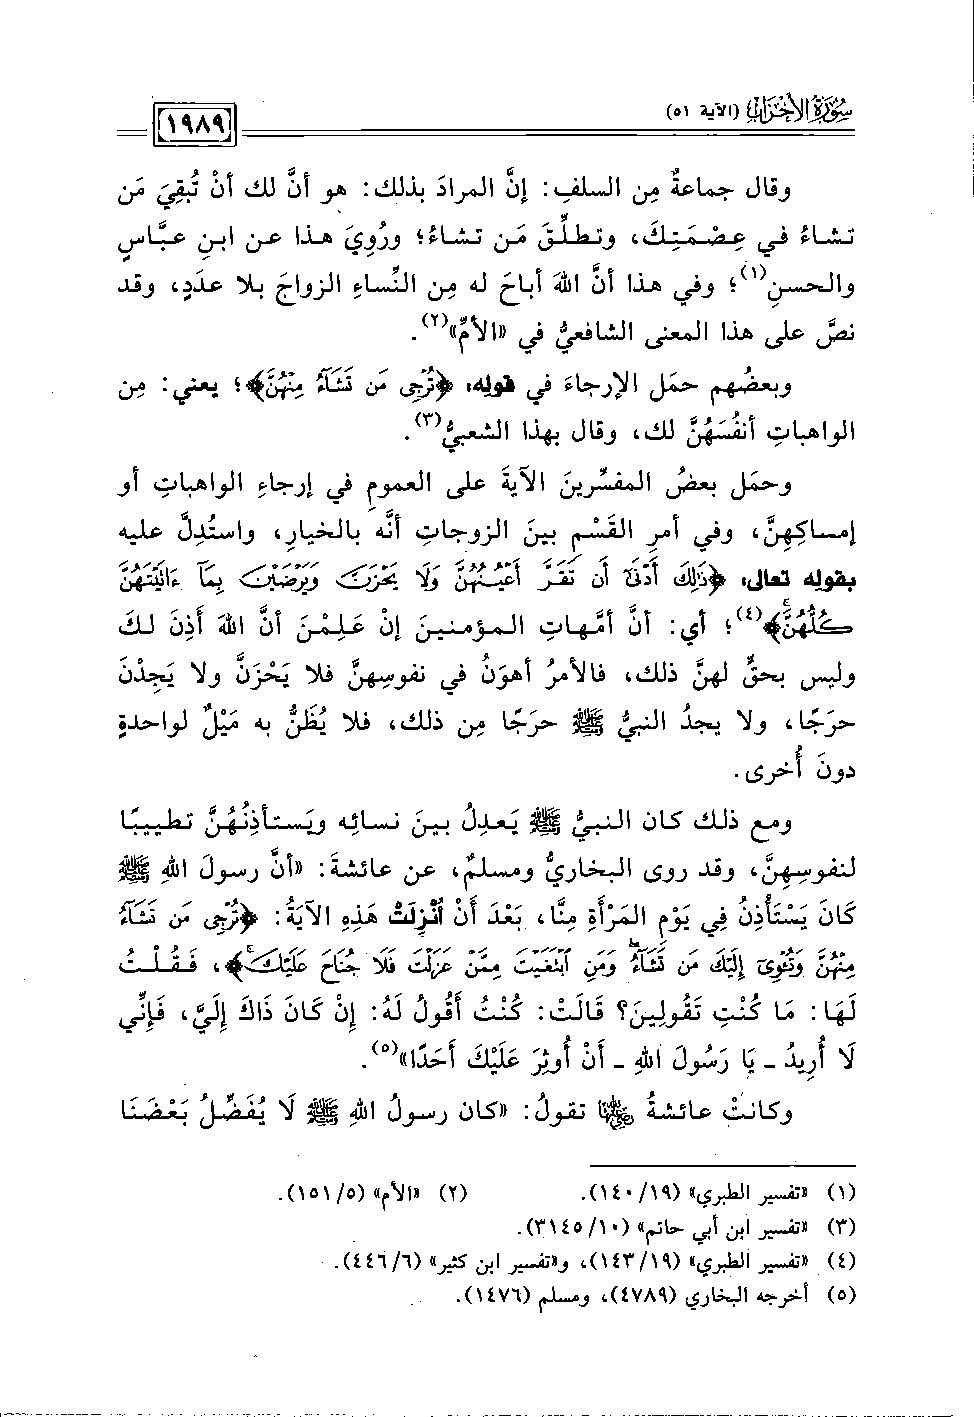 سُورَةُ الأَحْزَابِ (الآية ٥١)
١٩٨٩
وقال جماعةٌ مِن السلفِ: إنَّ المرادَ بذلك: هو أنَّ لك أنْ تُبقِيَ مَن
تشاءُ في عِصْمَتِكَ، وتطلِّقَ مَن تشاءُ؛ ورُوِيَ هذا عن ابنِ عبَّاسٍ
والحسنِ(١)؛ وفي هذا أنَّ اللهَ أباحَ له مِن النِّساءِ الزواجَ بلا عددٍ، وقد
نصَّ على هذا المعنى الشافعيُّ في «الأمِّ»(٢).
وبعضُهم حمَل الإرجاءَ في قوله: ﴿تُرْجِي مَن تَشَآءُ مِنْهُنَّ﴾؛ يعني: مِن
الواهباتِ أنفُسَهُنَّ لك، وقال بهذا الشعبيُّ(٣).
وحمَل بعضُ المفسِّرينَ الآيةَ على العمومِ في إرجاءِ الواهباتِ أو
إمساكِهِنَّ، وفي أمرِ القَسْمِ بينَ الزوجاتِ أنَّه بالخيارِ، واستُدِلَّ عليه
بقوله تعالى: ﴿ذَٰلِكَ أَدْنَىٰٓ أَن تَقَرَّ أَعْيُنُهُنَّ وَلَا يَحْزَنَّ وَيَرْضَيْنَ بِمَآ ءَاتَيْتَهُنَّ
كُلُّهُنَّ﴾(٤)؛ أي: أنَّ أمَّهاتِ المؤمنينَ إنْ عَلِمْنَ أنَّ اللهَ أَذِنَ لكَ
وليس بحقٍّ لهنَّ ذلك، فالأمرُ أهوَنُ في نفوسِهنَّ فلا يَحْزَنَّ ولا يَجِدْنَ
حرَجًا، ولا يجدُ النبيُّ ﷺ حرَجًا مِن ذلك، فلا يُظَنُّ به مَيْلٌ لواحدةٍ
دونَ أُخرى.
ومع ذلك كان النبيُّ ﷺ يَعدِلُ بينَ نسائِه ويَستأذِنُهُنَّ تطييبًا
لنفوسِهِنَّ، وقد روى البخاريُّ ومسلمٌ، عن عائشةَ: «أنَّ رسولَ اللهِ ﷺ
كَانَ يَسْتَأْذِنُ فِي يَوْمِ المَرْأَةِ مِنَّا، بَعْدَ أَنْ أُنْزِلَتْ هَذِهِ الآيَةُ: ﴿تُرْجِي مَن تَشَآءُ
مِنْهُنَّ وَتُـْٔوِيٓ إِلَيْكَ مَن تَشَآءُ ۖ وَمَنِ ٱبْتَغَيْتَ مِمَّنْ عَزَلْتَ فَلَا جُنَاحَ عَلَيْكَ ۚ﴾، فَقُلْتُ
لَهَا: مَا كُنْتِ تَقُولِينَ؟ قَالَتْ: كُنْتُ أَقُولُ لَهُ: إِنْ كَانَ ذَاكَ إِلَيَّ، فَإِنِّي
لَا أُرِيدُ - يَا رَسُولَ اللهِ - أَنْ أُوثِرَ عَلَيْكَ أَحَدًا»(٥).
وكانتْ عائشةُ ﵂ تقولُ: «كان رسولُ اللهِ ﷺ لَا يُفَضِّلُ بَعْضَنَا
(١) «تفسير الطبري» (١٤٠/١٩). (٢) «الأم» (١٥١/٥).
(٣) «تفسير ابن أبي حاتم» (٣١٤٥/١٠).
(٤) «تفسير الطبري» (١٤٣/١٩)، و«تفسير ابن كثير» (٤٤٦/٦).
(٥) أخرجه البخاري (٤٧٨٩)، ومسلم (١٤٧٦).